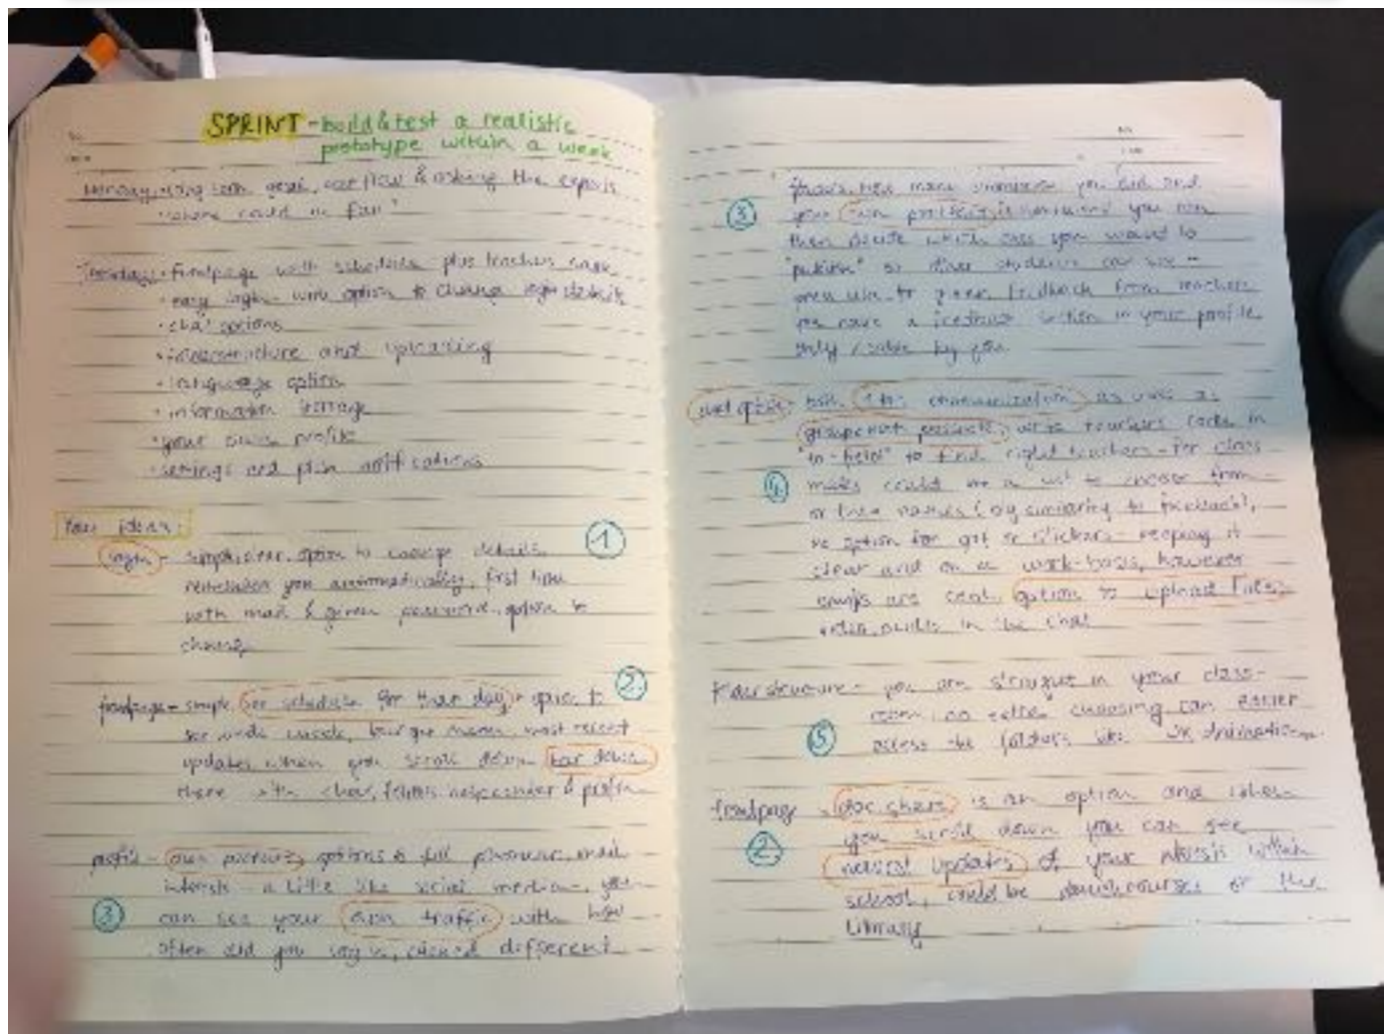 SPRINT - build & test a realistic
prototype within a week
Monday: long term goal, & asking the experts
"where could we fail"
Tuesday: Frontpage with schedule plus teachers
• easy login - with option to change login details
• chat options
• infrastructure and uploading
• language option
• information storage
• your own profile
• settings and push notifications
Your ideas:
① login - simple, clear, option to change details
remember you automatically, first time
with mail & given password, option to
change
② frontpage - simple, see schedule for that day - option to
see whole week, most recent
updates when you scroll down, bar down
there with chat, & profile
profil - own picture, options to fill phonenr, email
interests - a little like social media, you
③ can see your own traffic with how
often did you log in, clicked different
③ how many you did and
your own you can
then decide which ones you want to
"publish" so other students can see -
given feedback from teachers
you have a feedback section in your profile
only visible by you
chat option - both 1 to 1 communication as well as
groupchat possible, write teachers
"to-field" to find right teachers - for class
④ mates could be a list to choose from
or
no option for gif or stickers - keeping it
clear and on a work-basis, however
emojis are cool, option to upload files,
in the chat
Folder structure - you are straight in your class-
room, no extra choosing, can easier
⑤ access the folders
frontpage - doc share is an option and when
② you scroll down you can see
newest updates of your within
school, could be courses or the
Library